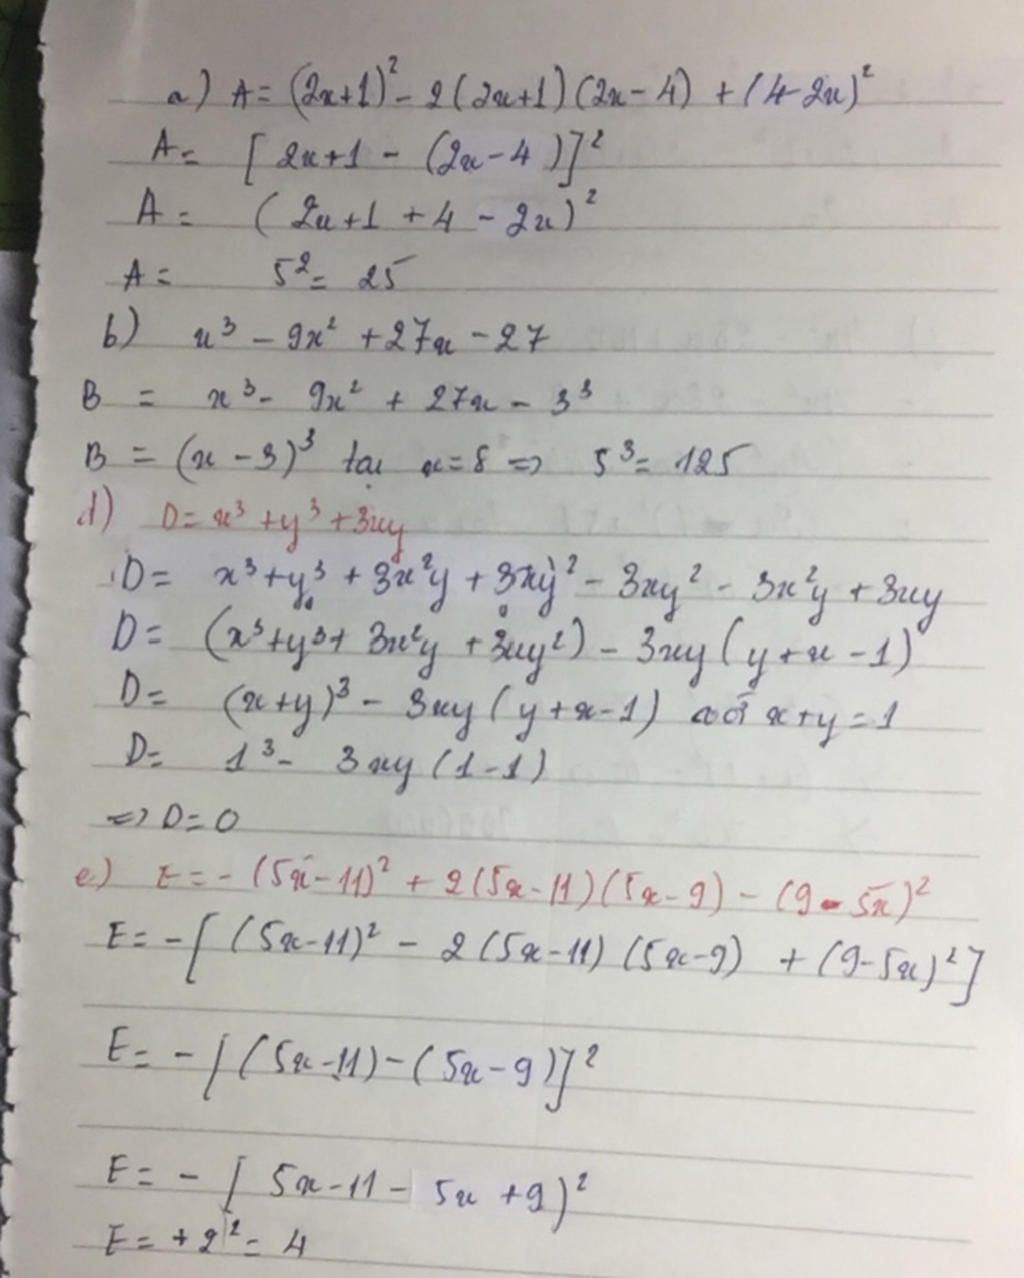 a) A = (2x+1)² - 2(2x+1)(2x-4) + (4-2x)²
A = [2x+1 - (2x-4)]²
A = (2x+1 + 4 - 2x)²
A = 5² = 25
b) x³ - 9x² + 27x - 27
B = x³ - 9x² + 27x - 3³
B = (x-3)³ tại x=8 => 5³ = 125
d) D = x³ + y³ + 3xy
D = x³ + y³ + 3x²y + 3xy² - 3xy² - 3x²y + 3xy
D = (x³ + y³ + 3x²y + 3xy²) - 3xy(y+x-1)
D = (x+y)³ - 3xy(y+x-1) với x+y=1
D = 1³ - 3xy(1-1)
=> D=0
e) E = -(5x-11)² + 2(5x-11)(5x-9) - (9-5x)²
E = -[(5x-11)² - 2(5x-11)(5x-9) + (9-5x)²]
E = -[(5x-11)-(5x-9)]²
E = -[5x-11-5x+9)²
E = +2² = 4